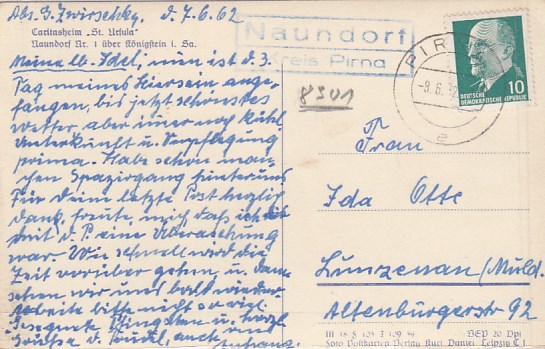 Abs. G. Zwirschky. d. 7.6.62
Caritasheim „St. Ursula"
Naundorf Nr. 1 über Königstein i. Sa.
Naundorf
Kreis Pirna
8301
PIR
-8.6.
e
10
DEUTSCHE
DEMOKRATISCHE REPUBLIK
Meine lb. Idel, nun ist d. 3.
Tag meines Hierseins ange-
fangen, bis jetzt schönstes
Wetter aber immer noch kühl.
Unterkunft u. Verpflegung
prima. Habe schon man-
chen Spaziergang hinter uns
Für Deine letzte Post herzlich
Dank, freute mich daß ich
mit d. P. eine Überraschung
war. Wie schnell wird die
Zeit vorüber gehen, u. dann
sehen wir uns bald wieder.
Arbeite bitte nicht so viel.
Gesegnete Pfingsten u. herzl.
Grüße d. auch
Anhang.
Frau
Ida Otte
Lunzenau/Muld.
Altenburgerstr 92
III 18 8
BEP 20 Dpf
Foto Postkarten Verlag Kurt Daniel Leipzig C 1